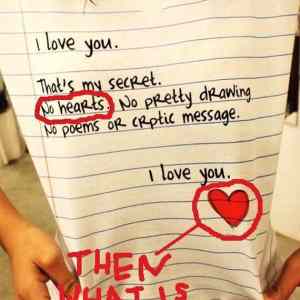 I love you.
That's my secret.
No hearts. No pretty drawing
No poems or crptic message.
I love you.
THEN
WHAT IS